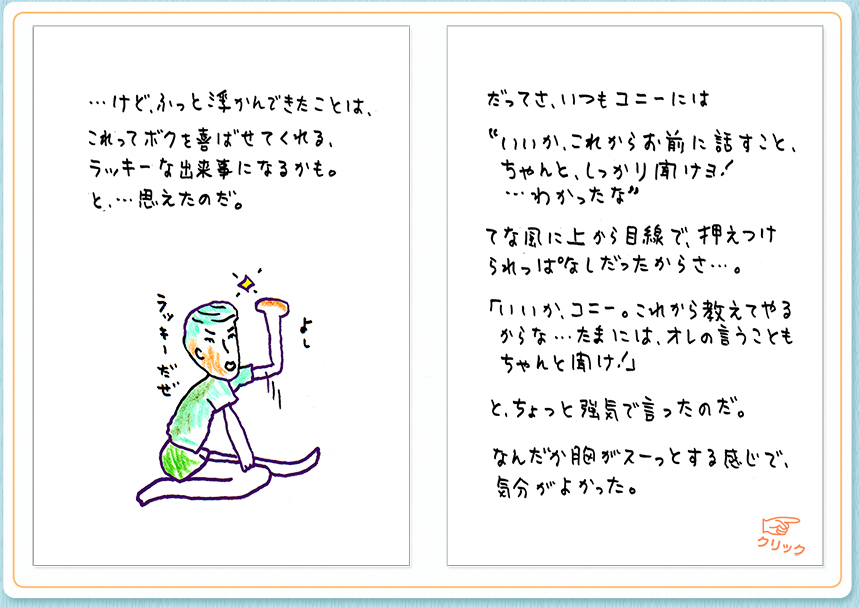 …けど、ふっと浮かんできたことは、
これってボクを喜ばせてくれる、
ラッキーな出来事になるかも。
と、…思えたのだ。
ラッキーだぜ
よし
だってさ、いつもコニーには
“いいか、これからお前に話すこと、
ちゃんと、しっかり聞けヨ!
…わかったな”
てな風に上から目線で、押えつけ
られっぱなしだったからさ…。
「いいか、コニー。これから教えてやる
からな…たまには、オレの言うことも
ちゃんと聞け!」
と、ちょっと強気で言ったのだ。
なんだか胸がスーっとする感じで、
気分がよかった。
クリック